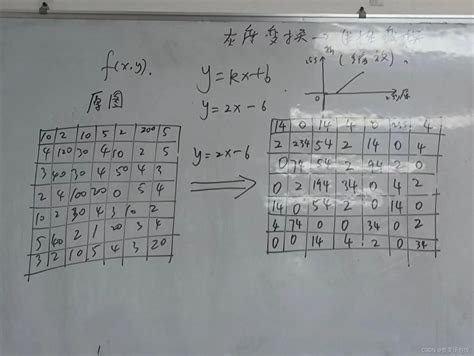 灰度变换→
f(x,y).
原图
y=kx+b
y=2x-6
255
0
y=2x-6
10 2 10 5 2 200 5
4 120 30 4 10 2 5
3 40 30 4 50 4 3
2 4 100 20 0 5 4
10 2 30 4 3 10 2
5 40 2 1 20 3 4
3 2 10 5 4 3 20
14 0 14 4 0 255 4
2 234 54 2 14 0 4
0 74 54 2 94 2 0
0 2 194 34 0 4 2
14 0 54 2 0 14 0
4 74 0 0 34 0 2
0 0 14 4 2 0 34